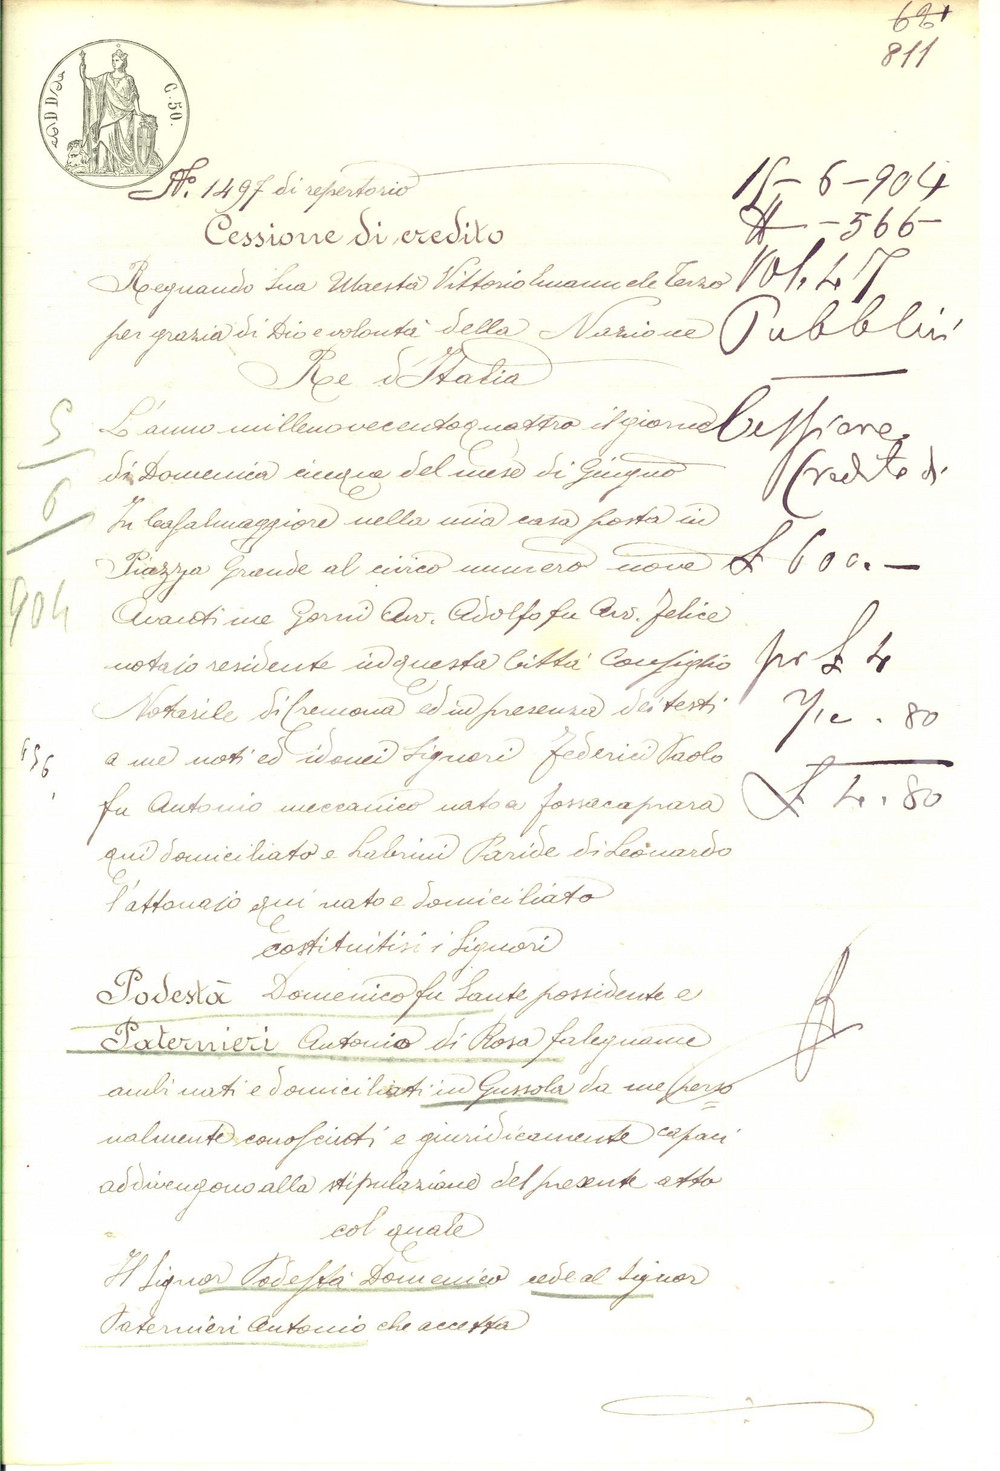 62
811
C. 50.
N°. 1497 di repertorio
Cessione di credito
Regnando Sua Maestà Vittorio Emanuele Terzo
per grazia di Dio e volontà della Nazione
Re d'Italia
L'anno millenovecentoquattro il giorno
di Domenica cinque del mese di Giugno
In Casalmaggiore nella mia casa posta in
Piazza Grande al civico numero nove
Avanti me Gorni Avv. Adolfo fu Avv. Felice
notajo residente in questa Città Consiglio
Notarile di Cremona ed in presenza dei testi
a me noti ed idonei Signori Federici Paolo
fu Antonio meccanico nato a Fossacaprara
qui domiciliato e Labrini Paride di Leonardo
l'attonajo qui nato e domiciliato
costituitisi i Signori
Podestà Domenico fu Sante possidente e
Paternieri Antonio di Rosa falegname
ambi nati e domiciliati in Gussola da me perso
nalmente conosciuti e giuridicamente capaci
addivengono alla stipulazione del presente atto
col quale
Il Signor Podestà Domenico cede al Signor
Paternieri Antonio che accetta
15-6-904
N-566-
Vol. 47
Pubblici
Cessione
Credito di
£ 600.—
pr £ 4
. 80
£ 4. 80
5
6
904